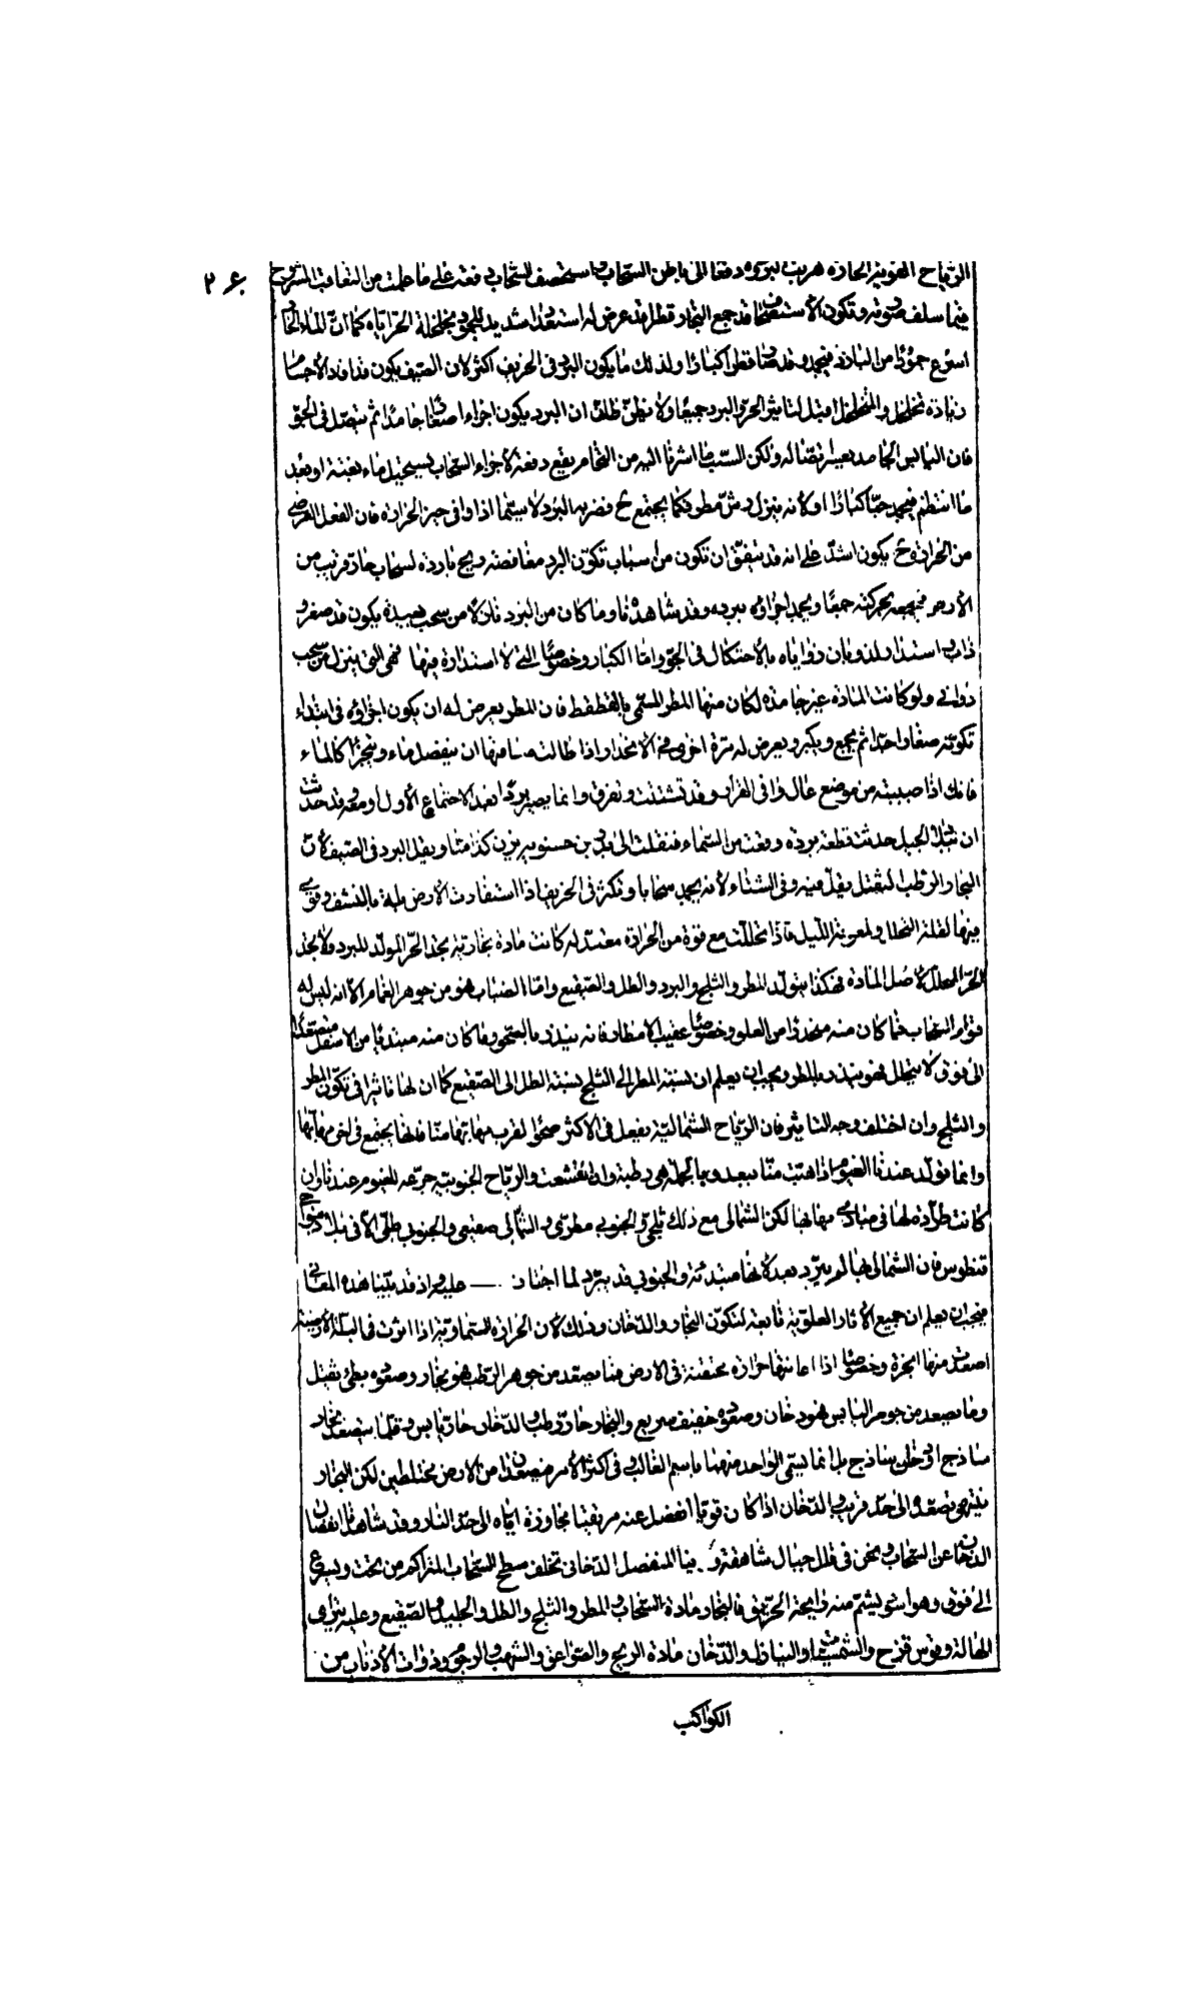 الرياح القوية الحارة هربت البرودة دفعة الى باطن السحاب واستحصف السحاب دفعة على ما علمت من التعاقب المشروح
٢٦٠
فيما سلف صورته وتكون الاستحصاف قد جمع البخار قطرا قد عرض له استعداد شديد للجمود بخلخلة الحر اياه كما ان الماء الحار
اسرع جمودا من البارد فيجمد وقد صار قطرا كبارا ولذلك ما يكون البرد فى الخريف اكثر لان الصيف يكون قد افاد الأجسام
زيادة تخلخل والمتخلخل اقبل لتأثير الحر والبرد جميعا ولا يظن ظان ان البرد يكون اجزاء صغارا جامدا ثم يتصل فى الجو
فان اليابس الجامد يعسر اتصاله ولكن السبب ما اشرنا اليه من التحام يقع دفعة لأجزاء السحاب يستحيل ماء بغتة او بعد
ما انتظم فيجمد حبا كبارا او لأنه ينزل رش مطر فكما يجتمع ح فضربه البرد لا سيما اذا وافى حيز الحرارة فان الفعل العرضى
من الحرارة ح يكون اشد على انه قد يتفق ان تكون من أسباب تكون البرد مغافصة ريح باردة لسحاب حار قريب من
الأرض فيجمعه بحركته جمعا ويجمد اجزاؤه ببرده وقد شاهدنا وما كان من البرد نازلا من سحب بعيدة يكون قد صغر و
ذاب واستدار لذوبان زواياه بالاحتكاك فى الجو واما الكبار وخصوصا التى لا استدارة فيها فهى التى ينزل من سحب
دوانى ولو كانت المادة غير جامدة لكان منها المطر المسمى بالقطقط فان المطر يعرض له ان يكون اجزاؤه فى ابتداء
تكونه صغارا جدا ثم يجمع ويكبر ويعرض له مرة اخرى فى الانحدار اذا طالت مسافتها ان ينفصل ماء ويتجزأ كالماء
فانك اذا صببته من موضع عال وافى القرار وقد تشتت وتفرق وانما يصير بردا بعد الاجتماع الأول او معه وقد حدثت
ان ببلاد الجبل حدثت قطعة بردة وقعت من السماء فنقلت الى بدر بن حسنويه يزن كذا منا ويقل البرد فى الصيف لأن
البخار الرطب الثقيل يقل فيه وفى الشتاء لأنه يجمد سحابا ويكثر فى الخريف اذا استفادت الأرض بلة بالنشف وقوى
فيها لقلة التحلل ولمعونة الليل فاذا تحللت مع قوة من الحرارة معتدلة كانت مادة بخارية يجد الحر المولد للبرد ولا يجد
الحر المحلل لأصل المادة فهكذا يتولد المطر والثلج والبرد والطل والصقيع واما الضباب فهو من جوهر الغمام الا انه ليس له
قوام السحاب فما كان منه منحدرا من العلو وخصوصا عقيب الامطار فانه ينذر بالصحو وما كان منه مبتدئا من الاسفل متصعدا
الى فوق لا يتحلل فهو ينذر بالمطر ويجب ان يعلم ان نسبة المطر الى الثلج نسبة الطل الى الصقيع كما ان لها تأثيرا فى تكون المطر
والثلج وان اختلف وجه التأثير فان الرياح الشمالية يفعل فى الاكثر صحوا لقرب مهابها منا فانها يجتمع فى اخر مهابها
وانما يولد عندنا الغيوم اذا هبت منا ببعد وبالجملة هى رطبة وان تقشعت والرياح الجنوبية جرعة للغيوم عندنا وان
كانت طرادة لها فى مبادى مهابها لكن الشمالى مع ذلك ثلجى والجنوبى مطرى والشمالى صقيعى والجنوبى طلى الا فى بلاد نواحى
قنطوس فان الشمالى بها لم يبرد بعد لأنها مبتدئة والجنوبى قد يبرد لما اجتاز — عليه واذ قد بينا هذه المعانى
فيجب ان يعلم ان جميع الأثار العلوية تابعة لتكون البخار والدخان وذلك لأن الحرارة السماوية اذا اثرت فى البلة الأرضية
اصعدت منها ابخرة وخصوصا اذا اعانتها حرارة محتقنة فى الارض فما يصعد من جوهر الرطب فهو بخار وصعوده بطئ ثقيل
وما يصعد من جوهر اليابس فهو دخان وصعوده خفيف سريع والبخار حار رطب والدخان حار يابس وقلما يتصعد بخار
ساذج او دخان ساذج بل انما يسمى الواحد منهما باسم الغالب وفى اكثر الأمر يتصعدان من الارض مختلطين لكن البخار
ينتهى تصعده الى حد قريب والدخان اذا كان قويا انفصل عنه مرتقيا مجاوزة اياه الى حد النار وقد شاهدنا انفصال
الدخان عن السحاب ونحن فى قلل جبال شاهقة و بينا المنفصل الدخانى تخلف سطح السحاب المتراكم من تحت ويسرع
الى فوق وهو اسود يشتم منه رايحة الحريق فالبخار مادة السحاب والمطر والثلج والطل والجليد والصقيع وعليه يترائى
الهالة وقوس قزح والشميسات والنيازك والدخان مادة الريح والصواعق والشهب والرجوم وذوات الأذناب من
الكواكب